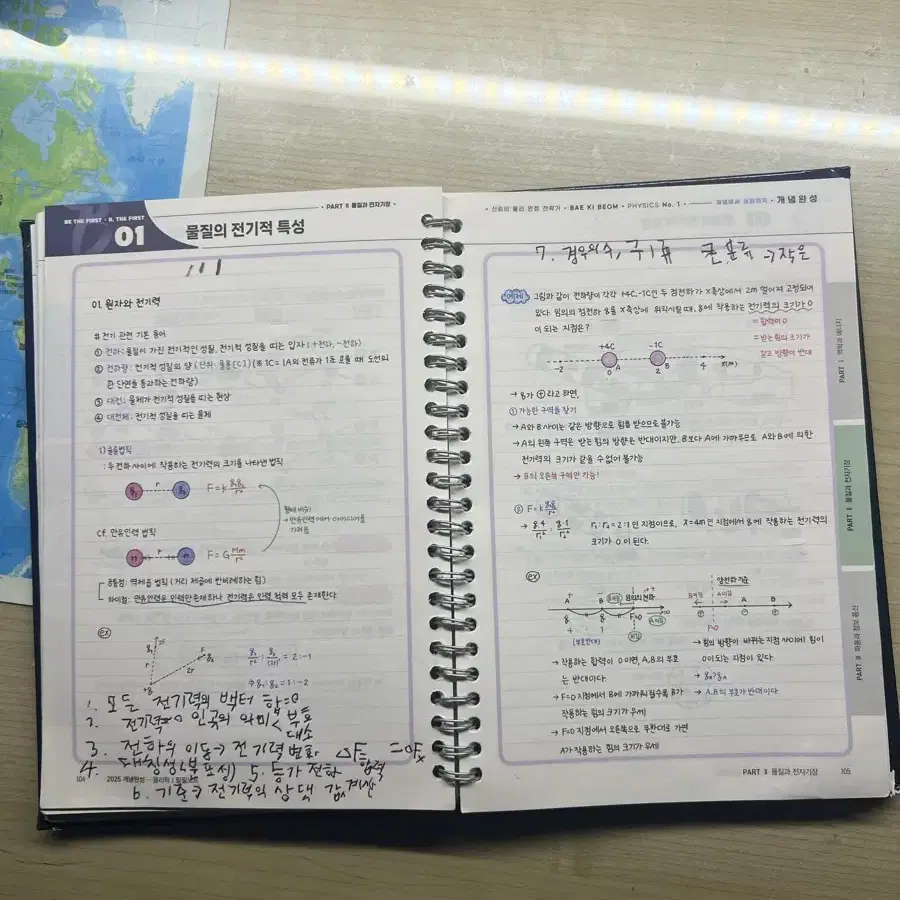 BE THE FIRST · B, THE FIRST
01
물질의 전기적 특성
· PART Ⅱ 물질과 전자기장 ·
01. 원자와 전기력
# 전기 관련 기본 용어
① 전하: 물질이 가진 전기적인 성질, 전기적 성질을 띠는 입자 (+전하, -전하)
② 전하량: 전기적 성질의 양 (단위: 쿨롬[C]) (※ 1C = 1A의 전류가 1초 흐를 때 도선의
한 단면을 통과하는 전하량)
③ 대전: 물체가 전기적 성질을 띠는 현상
④ 대전체: 전기적 성질을 띠는 물체
1) 쿨롱법칙
: 두 전하 사이에 작용하는 전기력의 크기를 나타낸 법칙
q₁ r q₂ F = k q₁q₂/r²
→ 만유인력에서 아이디어를
가져옴
Cf. 만유인력 법칙
M r m F = G Mm/r²
공통점: 역제곱 법칙 (거리 제곱에 반비례하는 힘)
차이점: 만유인력은 인력만 존재하나 전기력은 인력 척력 모두 존재한다
ex)
2F r F q₂ 2r q₁/r² : q₂/(2r)² = 2 : -1
⇒ q₁ : q₂ = 1 : -2
1. 모든 전기력의 벡터 합=0
2. 전기력=0 인곳의 의미 < 부호
대소
3. 전하의 이동 → 전기력 변화
4. 대칭성 5. 등가 전하 합력
6. 기준 전기력의 상댓값 계산
104 2025 개념완성 물리학Ⅰ 필기노트
· 신뢰의 물리 만점 전략가 · BAE KI BEOM · PHYSICS No. 1 · 개념에서 실전까지 · 개념완성
7. 경우의수, 큰 분류 → 작은
예제 그림과 같이 전하량이 각각 +4C, -1C인 두 점전하가 x축상에서 2m 떨어져 고정되어
있다. 임의의 점전하 q를 x축상에 위치시킬 때, q에 작용하는 전기력의 크기가 0
이 되는 지점은?
= 합력이 0
= 받는 힘의 크기가
같고 방향이 반대
+4C -1C
-2 0 A 2 B 4 x(m)
→ q가 ⊕라고 하면,
① 가능한 구역을 찾기
→ A와 B 사이는 같은 방향으로 힘을 받으므로 불가능
→ A의 왼쪽 구역은 받는 힘의 방향은 반대이지만, B보다 A에 가까우므로 A와 B에 의한
전기력의 크기가 같을 수 없어 불가능
→ B의 오른쪽 구역만 가능!
② F = k q₁q₂/r²
→ q·4/r₁² : q·1/r₂² r₁ : r₂ = 2 : 1 인 지점이므로, x = 4m인 지점에서 q에 작용하는 전기력의
크기가 0이 된다.
ex)
A B 임의의 전하
F=0
4 : 1
(부호반대)
→ 작용하는 합력이 0이면, A, B의 부호
는 반대이다.
→ F=0 지점에서 B에 가까워질수록 B가
작용하는 힘의 크기가 우세
→ F=0 지점에서 오른쪽으로 무한대로 가면
A가 작용하는 힘의 크기가 우세
양전하 기준
B우세 A우세 A B
F=0
→ 힘의 방향이 바뀌는 지점 사이에 힘이
0이 되는 지점이 있다.
→ qB > qA
→ A, B의 부호가 반대이다
PART Ⅰ 역학과 에너지
PART Ⅱ 물질과 전자기장
PART Ⅲ 파동과 정보 통신
PART Ⅱ 물질과 전자기장 105